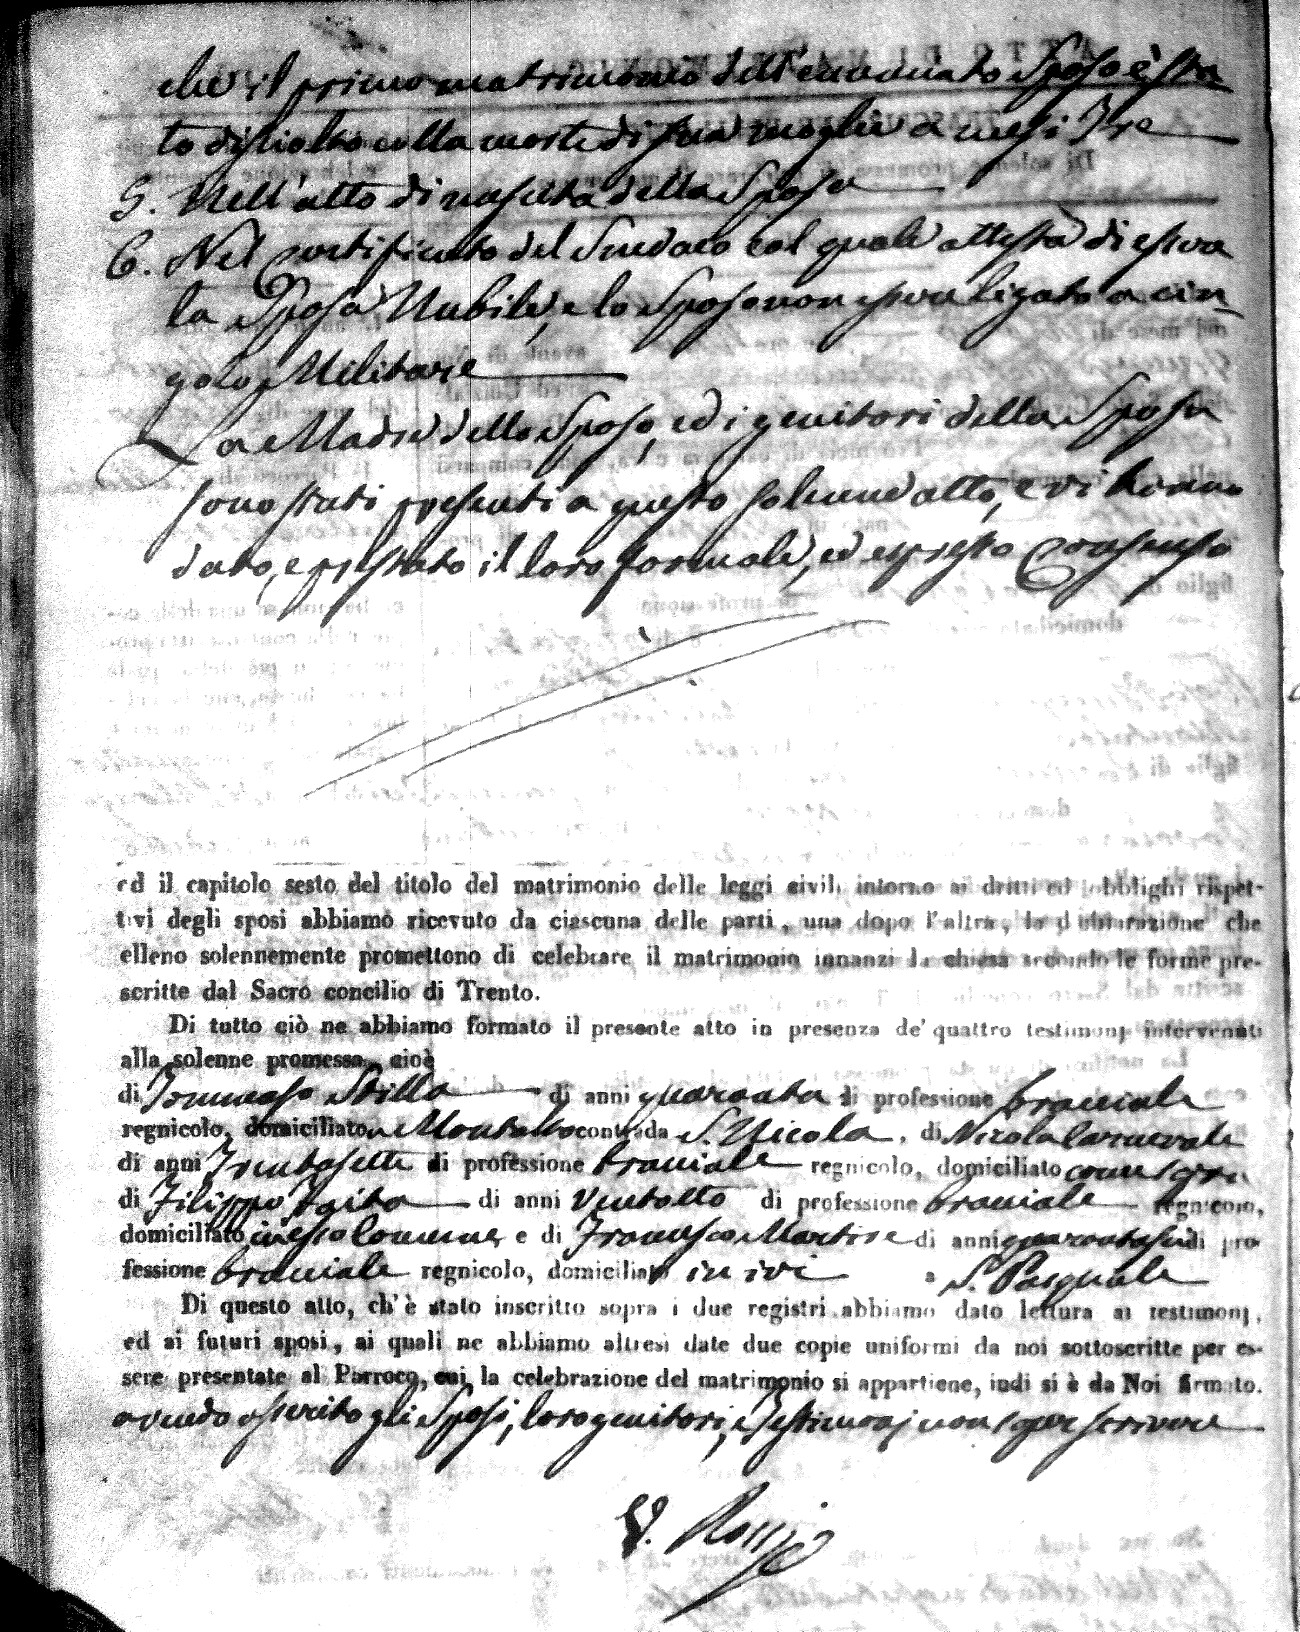 che il primo matrimonio dell'enunciato Sposo è sta
to disciolto colla morte di sua moglie a mesi Tre
5. Nell'atto di nascita della Sposa
6. Nel certificato del Sindaco col quale attesta di essere
la Sposa Nubile, e lo Sposo non essere ligato a cin
golo Militare
La Madre dello Sposo, ed i genitori della Sposa
sono stati presenti a questo solenne atto, e vi hanno
dato, e prestato il loro formale, ed espresso Consenso
ed il capitolo sesto del titolo del matrimonio delle leggi civili intorno ai dritti ed obblighi rispet-
tivi degli sposi abbiamo ricevuto da ciascuna delle parti, una dopo l'altra, la dichiarazione che
elleno solennemente promettono di celebrare il matrimonio innanzi la chiesa secondo le forme pre-
scritte dal Sacro concilio di Trento.
Di tutto ciò ne abbiamo formato il presente atto in presenza de' quattro testimonj intervenuti
alla solenne promessa, cioè
di Tommaso Stilla di anni quaranta di professione bracciale
regnicolo, domiciliato contrada S. Nicola, di Nicola Carnevale
di anni Trentasette di professione bracciale regnicolo, domiciliato come sopra
di Filippo Zaita di anni Ventotto di professione bracciale regnicolo,
domiciliato in esso Comune, e di Francesco Martire di anni quarantasei di pro-
fessione bracciale regnicolo, domiciliato in ivi S. Pasquale
Di questo atto, ch'è stato inscritto sopra i due registri abbiamo dato lettura ai testimonj,
ed ai futuri sposi, ai quali ne abbiamo altresì date due copie uniformi da noi sottoscritte per es-
sere presentate al Parroco, cui la celebrazione del matrimonio si appartiene, indi si è da Noi firmato.
avendo asserito gli Sposi, loro genitori, e Testimonj non saper scrivere
V. Rossi